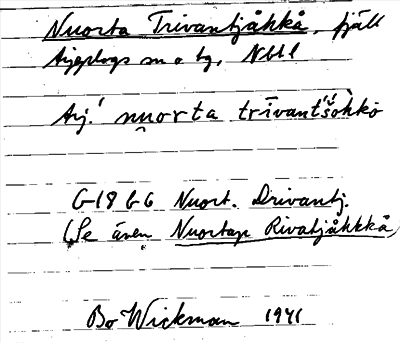 Nuorta Trivantjåkkå, fjäll
Arjeplogs sn o tg, Nbtl
Arj. nuorta trīvant'šohkò
G 18 6 G Nuort. Drivantj.
(Se även Nuortap Rivatjåkkkå)
Bo Wickman 1941